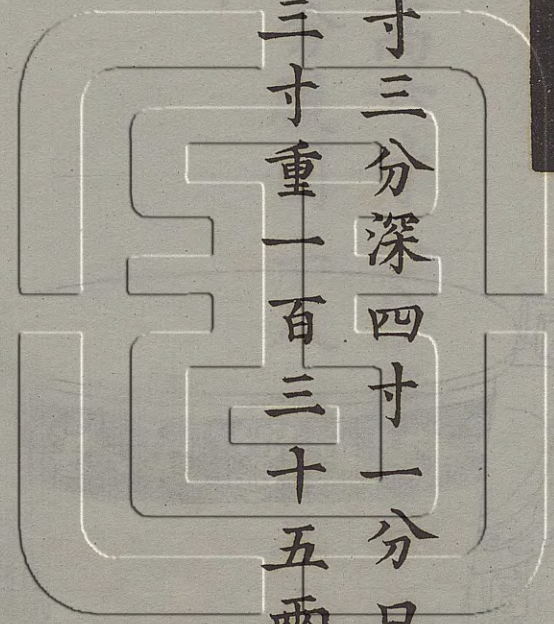 寸三分深四寸一分口
三寸重一百三十五兩